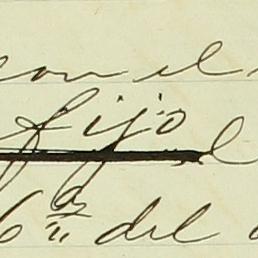 con el
fijo
el
6ª del